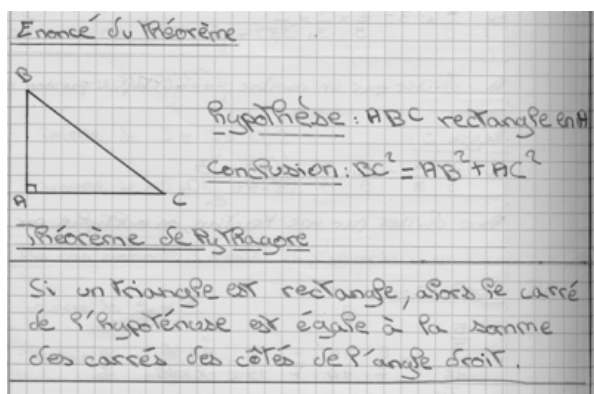 Enoncé du théorème
B
hypothèse : ABC rectangle en A
conclusion : BC² = AB² + AC²
A
C
Théorème de Pythagore
Si un triangle est rectangle, alors le carré
de l'hypoténuse est égale à la somme
des carrés des côtés de l'angle droit.